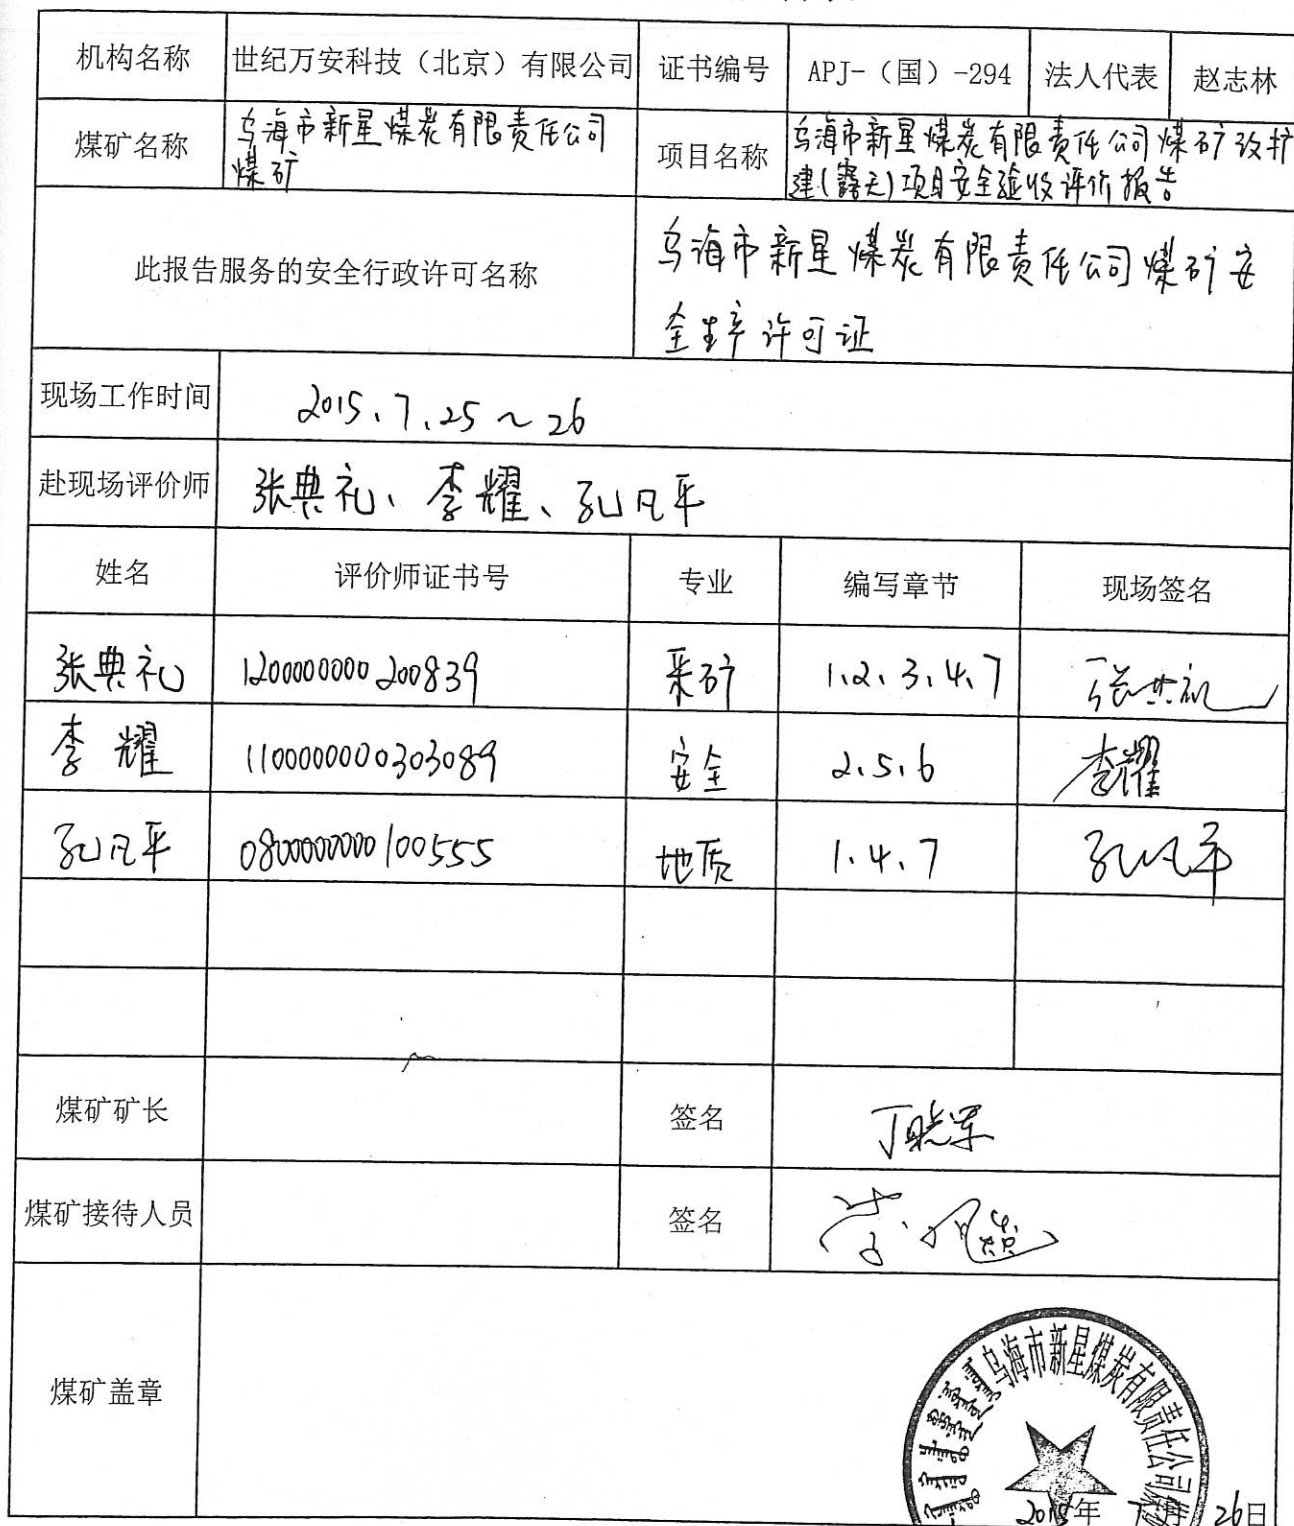 机构名称 世纪万安科技（北京）有限公司 证书编号 APJ-（国）-294 法人代表 赵志林
煤矿名称 乌海市新星煤炭有限责任公司
煤矿
项目名称 乌海市新星煤炭有限责任公司煤矿改扩
建(露天)项目安全验收评价报告
此报告服务的安全行政许可名称 乌海市新星煤炭有限责任公司煤矿安
全生产许可证
现场工作时间 2015、7、25～26
赴现场评价师 张典礼、李耀、孔凡平
姓名 评价师证书号 专业 编写章节 现场签名
张典礼 1200000000200839 采矿 1、2、3、4、7 张典礼
李耀 1100000000303089 安全 2、5、6 李耀
孔凡平 0800000000100555 地质 1、4、7 孔凡平
煤矿矿长 签名 丁晓军
煤矿接待人员 签名
煤矿盖章
乌海市新星煤炭有限责任公司煤矿
2015年 7月 26日